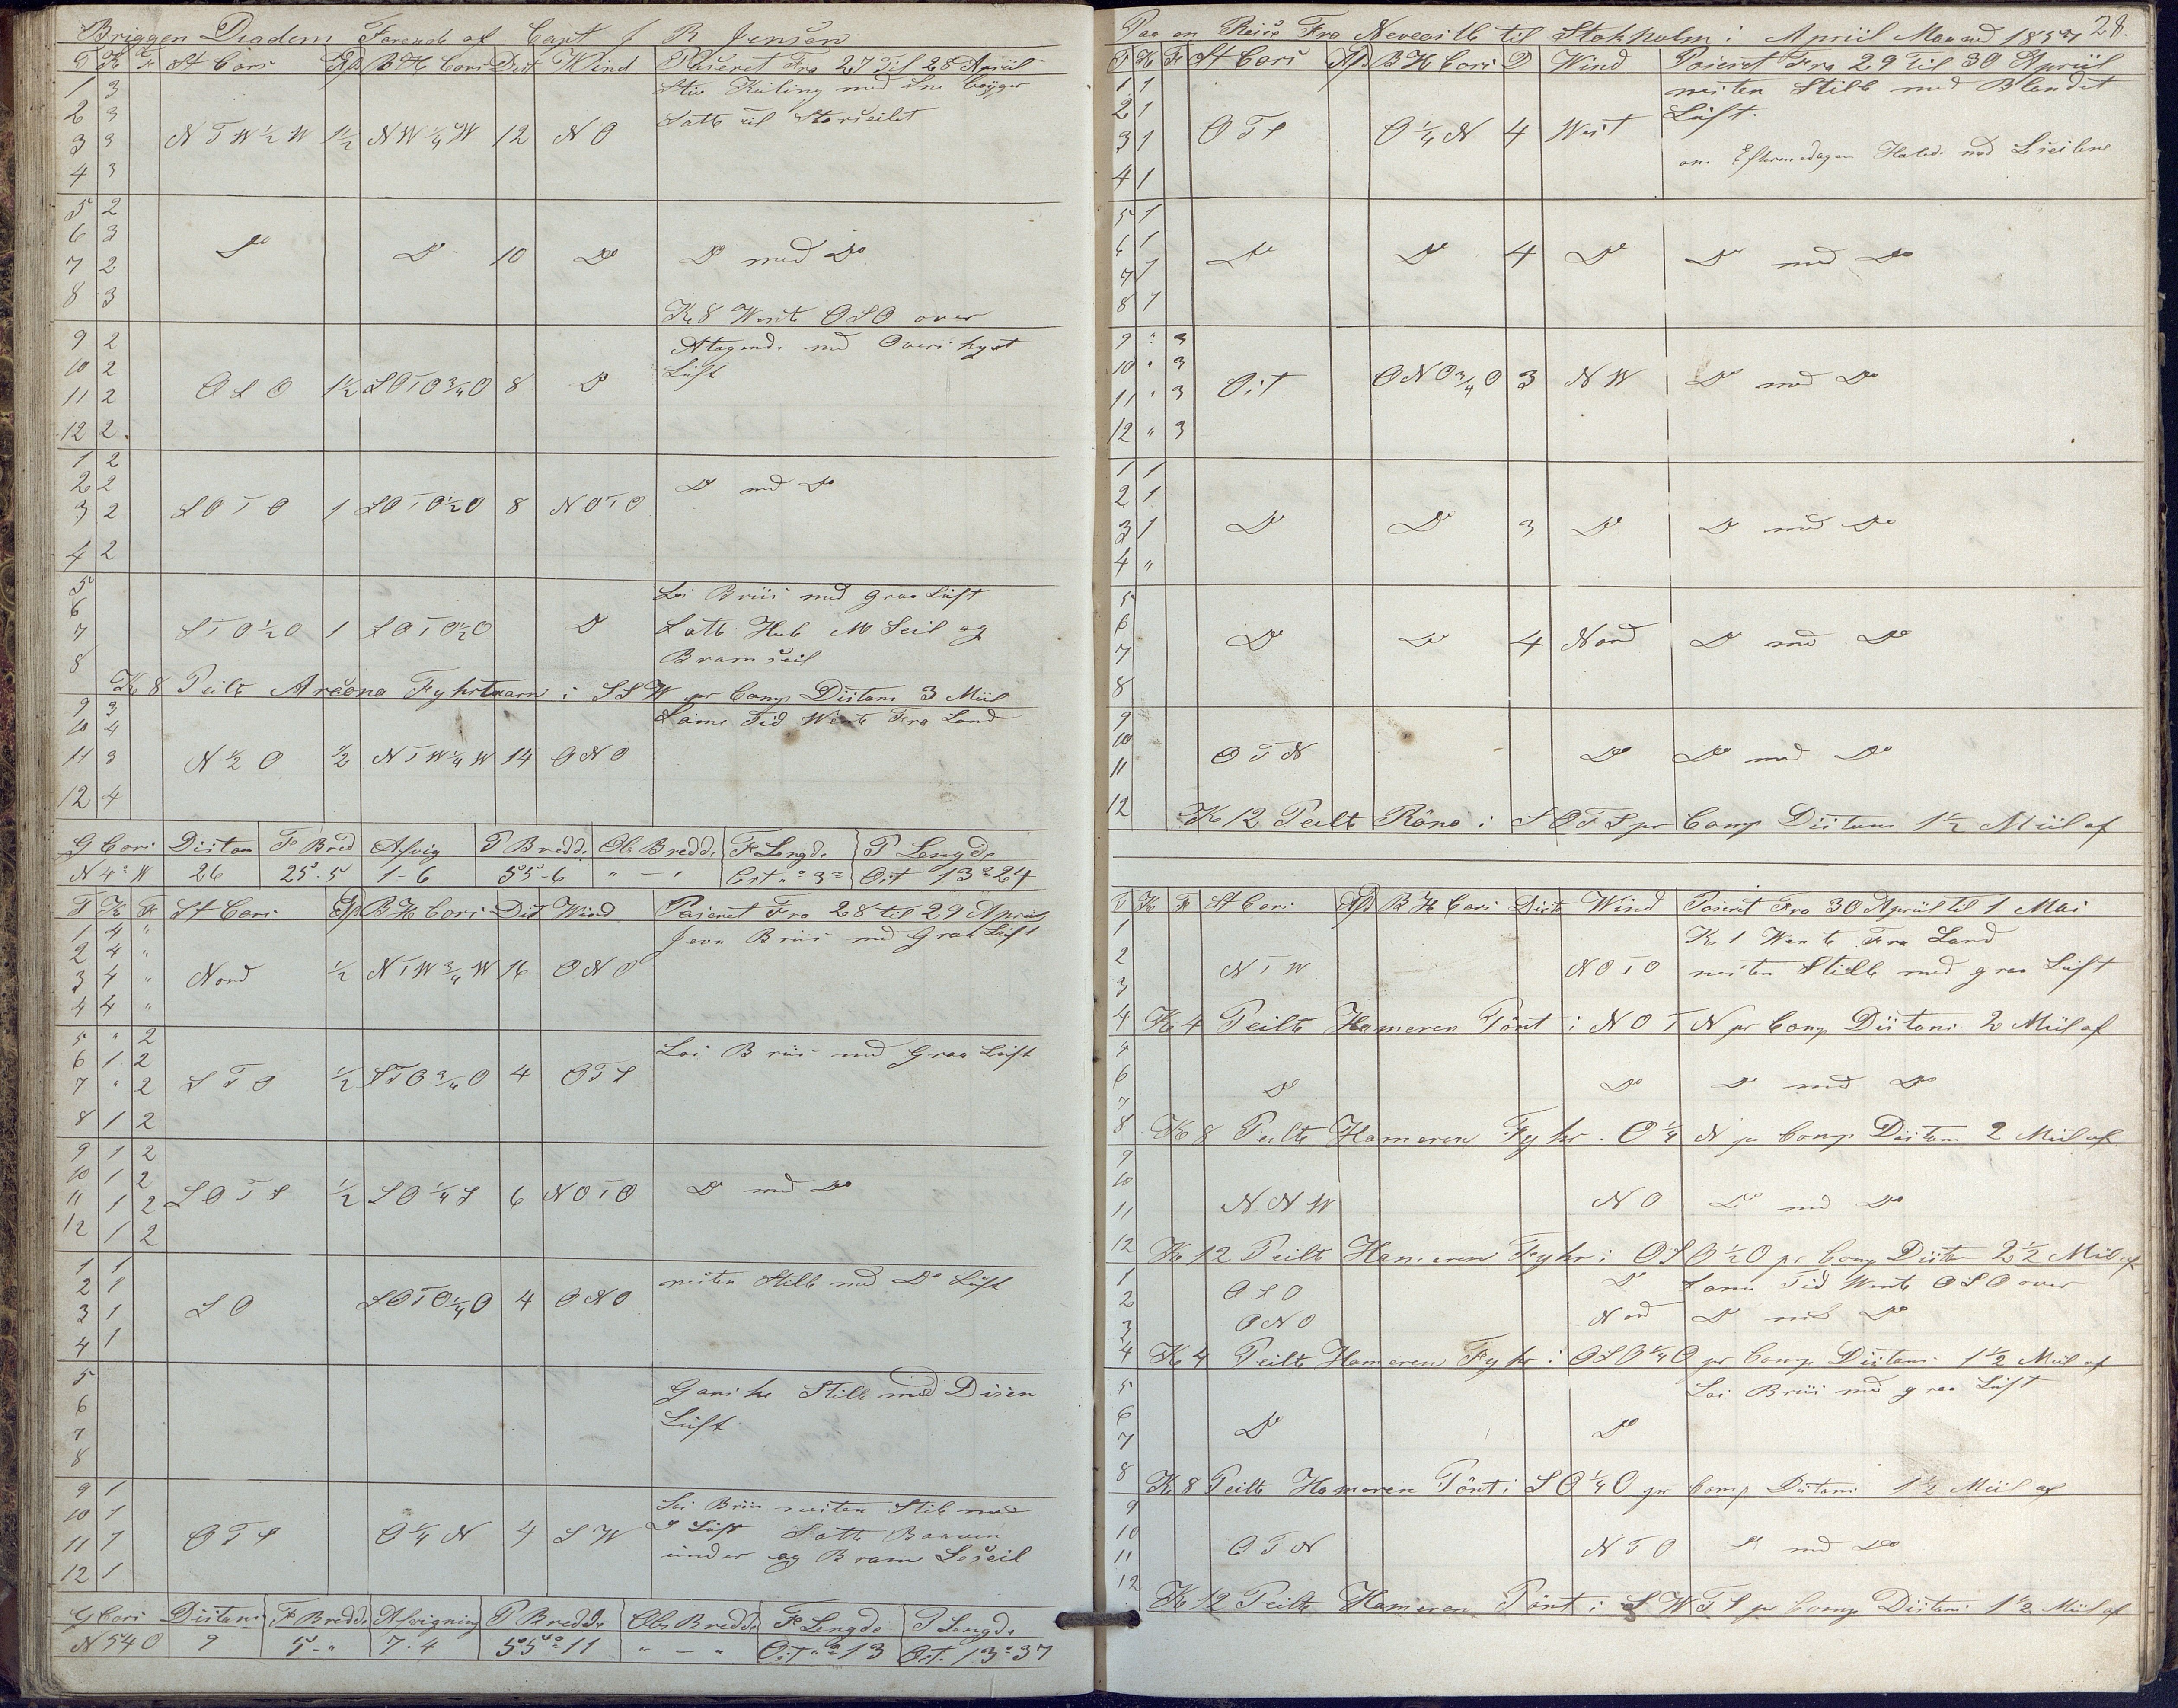 Briggen Diadem Førende af Capt J R Jensen
T K F St Cors Afd B H Cors Dist Wind Paseret Fra 27 Til 28 Apriil
1 3 Stiv Kuling med Sne bøyger
2 3 Satte til Storseilet
3 3 N T W ½ W 1½ NW ¼ W 12 N O
4 3
5 2
6 3 Do Do 10 Do Do med Do
7 2
8 3 Kl 8 Wente OSO over
9 2 Atagende med Overskyet
10 2 Luft
11 2 O S O 1½ SOTO ¾ O 8 Do
12 2
1 2
2 2 Do med Do
3 2 S O T O 1 SOTO ½ O 8 NOTO
4 2
5 Løi Briis med graa Luft
6 Satte Hele M Seil og
7 STO ½ O 1 SOTO ½ O Do Bramseil
8 Kl 8 Peilte Arcona Fyhrtaarn i SSW pr Comp Distans 3 Miil
9 3 Same Tid Wente Fra Land
10 4
11 3 N ½ O ½ NTW ¼ W 14 ONO
12 4
G Cors Distan F Bred Afvig P Bredde Obs Bredde F Lengde P Lengde
N 4° W 26 25.5 1-6 55-6 " - " Ost "° 3 Ost 13° 24
T K F St Cors Afd B H Cors Dist Wind Paseret Fra 28 til 29 Apriil
1 4 " Jevn Briis med Graa Luft
2 4 "
3 4 " Nord ½ NTW ¾ W 16 ONO
4 4 "
5 " 2 Løi Briis med Graa Luft
6 1 2
7 " 2 S T O ½ STO ¾ O 4 OTS
8 1 2
9 1 2
10 1 2
11 1 2 SOTS ½ SO ¼ S 6 NOTO Do med Do
12 1 2
1 1 nesten Stille med Do Luft
2 1
3 1 S O SOTO ¼ O 4 ONO
4 1
5 Ganske Stille med Disen
6 Luft
7
8
9 1 Løi Briis nesten Stile med
10 1 Do Luft Satte Baaven
11 1 OTS O ¼ N 4 SW under og Bram Leseil
12 1
G Cors Distans F Bredde Afvigning P Bredde Obs Bredde F Lengde P Lengde
N 54 O 9 5-" 7.4 55°11 " - " Ost "° 13 Ost. 13° 37
Paa en Reise Fra Neweastle til Stokholm i Apriil Maaned 1857 28.
T K F St Cors Afd B H Cors D Wind Paseret Fra 29 Til 30 Apriil
1 1 nesten Stille med Blandet
2 1 Luft.
3 1 OTS O ¼ N 4 West om Eftermedagen Halede ned Leseilene
4 1
5 1
6 1 Do Do 4 Do Do med Do
7 1
8 1
9 " 3
10 " 3
11 " 3 Ost ONO ¾ O 3 NW Do med Do
12 " 3
1 1
2 1
3 1 Do Do 3 Do Do med Do
4 "
5
6
7 Do Do 4 Nord Do med Do
8
9
10 OTN Do Do med Do
11
12 Kl 12 Peilte Röna i SOTS pr Comp Distans 1½ Miil af
T K F St Cors Afd B H Cors Dist Wind Paseret Fra 30 Apriil til 1 Mai
1 Kl 1 Wente Fra Land
2 NTW NOTO nesten Stille med graa Luft
3
4 Kl 4 Peilte Hameren Pönt i NOTN pr Comp Distans 2 Miil af
5
6 Do Do Do med Do
7
8 Kl 8 Peilte Hameren Fyhr. O ¼ N pr Comp Distans 2 Miil af
9
10
11 NNW NO Do med Do
12 Kl 12 Peilte Hameren Fyhr i OSO ½ O pr Comp Distan 2½ Miil af
1 Do Same Tid Wente OSO over
2 OSO
3 ONO Nord Do med Do
4 Kl 4 Peilte Hameren Fyhr i OSO ¼ O pr Comp Distans 1½ Miil af
5 Løi Briis med graa Luft
6 Do Do
7
8 Kl 8 Peilte Hameren Pönt i SO ¼ O pr Comp Distans 1½ Miil af
9
10
11 OTN NTO Do med Do
12 Kl 12 Peilte Hameren Pönt i SWTS pr Comp Distans 1½ Miil af